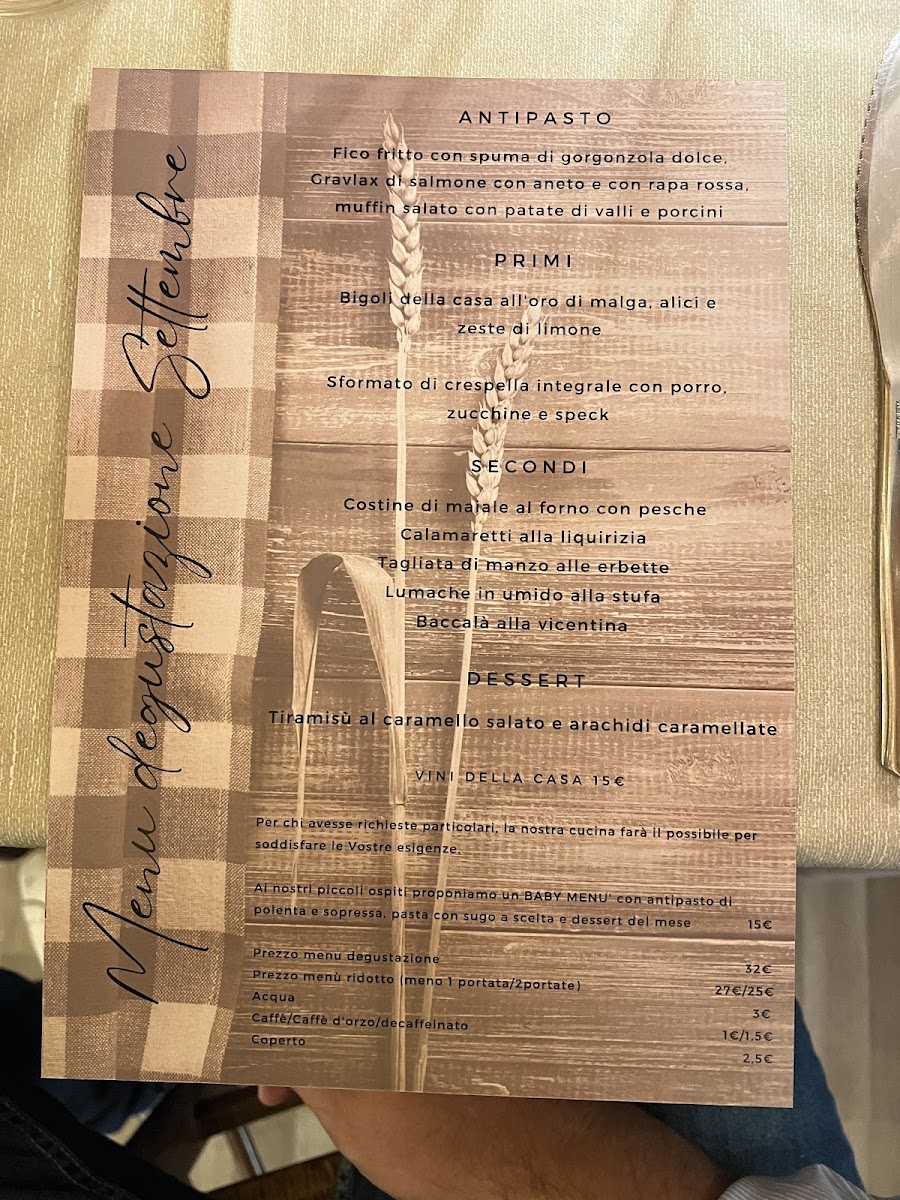 Menu degustazione Settembre
ANTIPASTO
Fico fritto con spuma di gorgonzola dolce,
Gravlax di salmone con aneto e con rapa rossa,
muffin salato con patate di valli e porcini
PRIMI
Bigoli della casa all'oro di malga, alici e
zeste di limone
Sformato di crespella integrale con porro,
zucchine e speck
SECONDI
Costine di maiale al forno con pesche
Calamaretti alla liquirizia
Tagliata di manzo alle erbette
Lumache in umido alla stufa
Baccalà alla vicentina
DESSERT
Tiramisù al caramello salato e arachidi caramellate
VINI DELLA CASA 15€
Per chi avesse richieste particolari, la nostra cucina farà il possibile per
soddisfare le Vostre esigenze.
Ai nostri piccoli ospiti proponiamo un BABY MENU' con antipasto di
polenta e sopressa, pasta con sugo a scelta e dessert del mese 15€
Prezzo menu degustazione 32€
Prezzo menù ridotto (meno 1 portata/2portate) 27€/25€
Acqua 3€
Caffè/Caffè d'orzo/decaffeinato 1€/1,5€
Coperto 2,5€